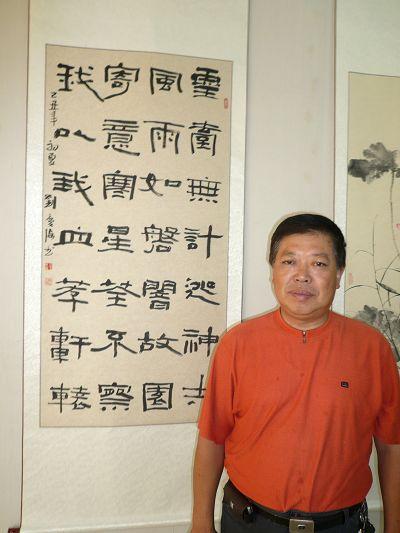 靈臺無計逃神矢
風雨如磐闇故園
寄意寒星荃不察
我以我血荐軒轅
己丑年初夏 劉海书